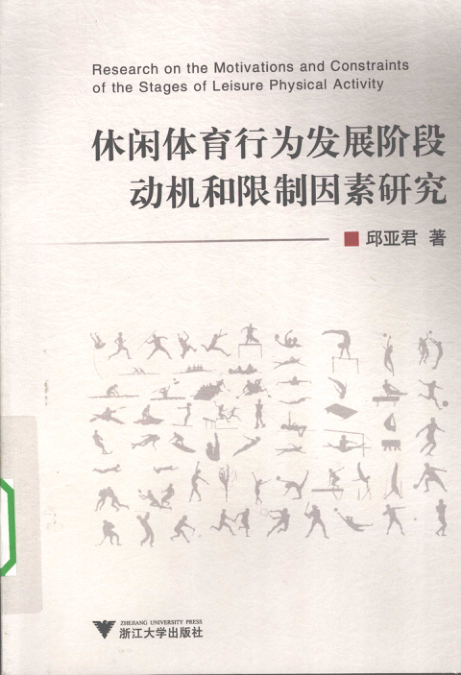 Research on the Motivations and Constraints
of the Stages of Leisure Physical Activity
休闲体育行为发展阶段
动机和限制因素研究
邱亚君 著
ZHEJIANG UNIVERSITY PRESS
浙江大学出版社